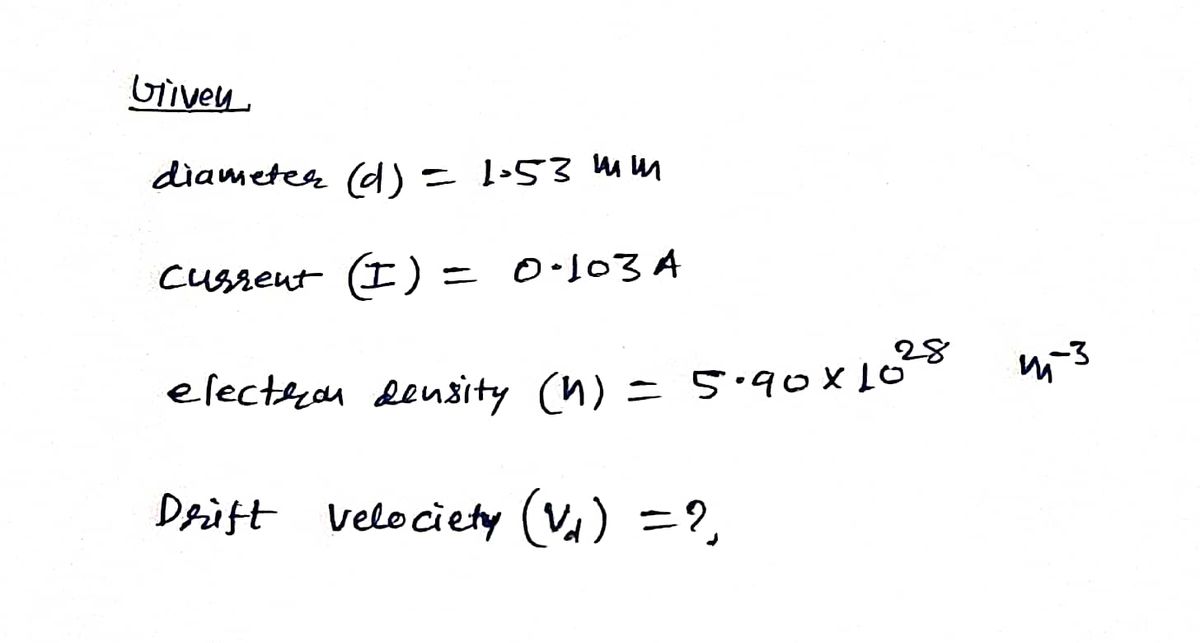 Given
diameter (d) = 1.53 mm
current (I) = 0.103 A
electron density (n) = 5.90 x 10²⁸ m⁻³
Drift velociety (Vd) = ?